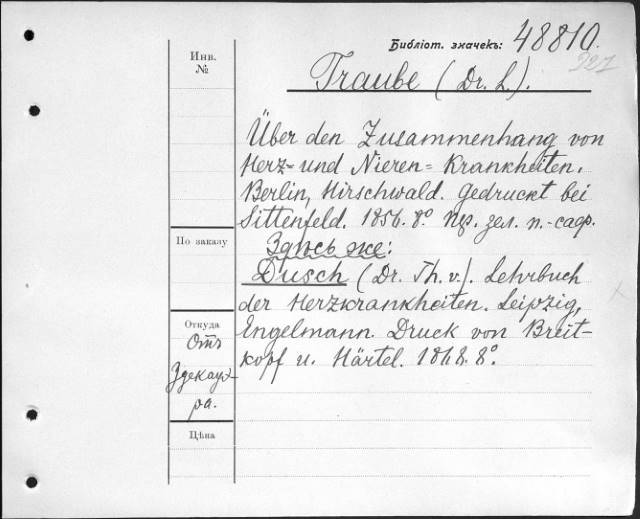 Библіот. значекъ: 48810.
227
Инв.
№
Traube (Dr. L.).
Über den Zusammenhang von
Herz- und Nieren-Krankheiten.
Berlin, Hirschwald. Gedruckt bei
Sittenfeld. 1856. 8º. Пер. зел. п.-саф.
По заказу
Здѣсь же:
Dusch (Dr. Th. v.). Lehrbuch
der Herzkrankheiten. Leipzig,
Откуда
Отъ
Здекауэ-
ра.
Engelmann. Druck von Breit-
kopf u. Härtel. 1868. 8º.
Цѣна